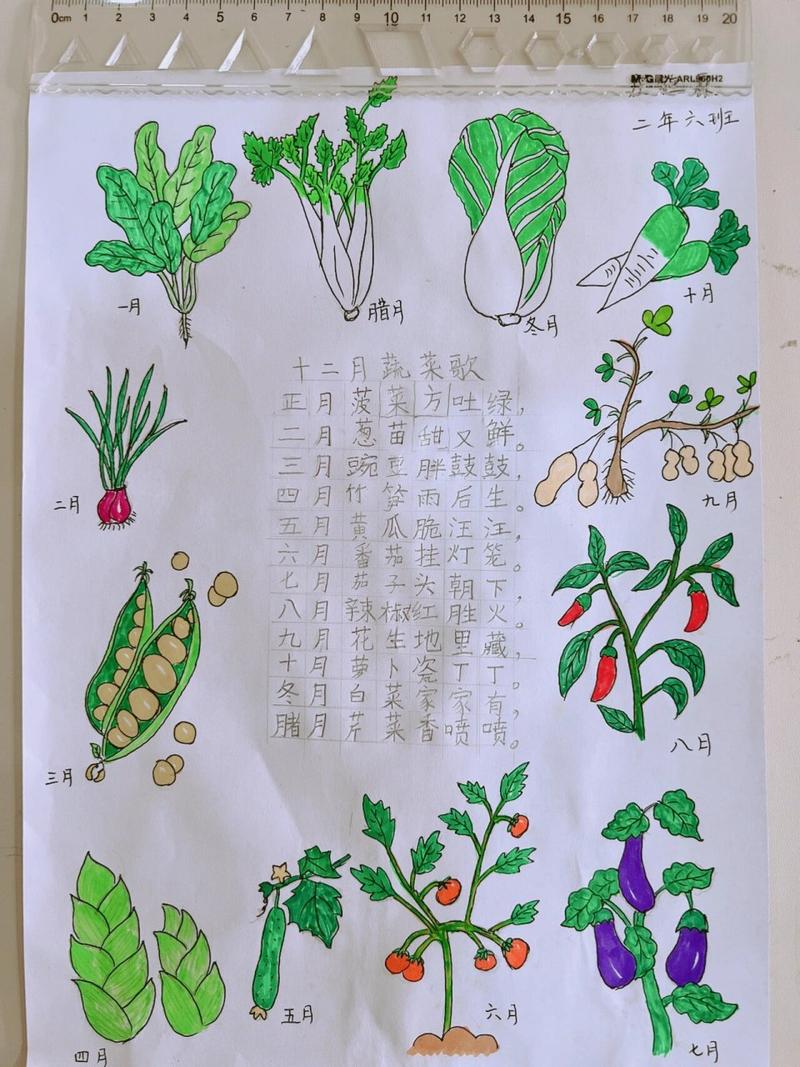 0cm 1 2 3 4 5 6 7 8 9 10 11 12 13 14 15 16 17 18 19 20
二年六班
一月
腊月
冬月
十月
二月
九月
三月
八月
十二月蔬菜歌
正月菠菜方吐绿，
二月葱苗甜又鲜。
三月豌豆胖鼓鼓，
四月竹笋雨后生。
五月黄瓜脆汪汪，
六月番茄挂灯笼。
七月茄子头朝下，
八月辣椒红胜火。
九月花生地里藏，
十月萝卜瓷丁丁。
冬月白菜家家有，
腊月芹菜香喷喷。
四月
五月
六月
七月